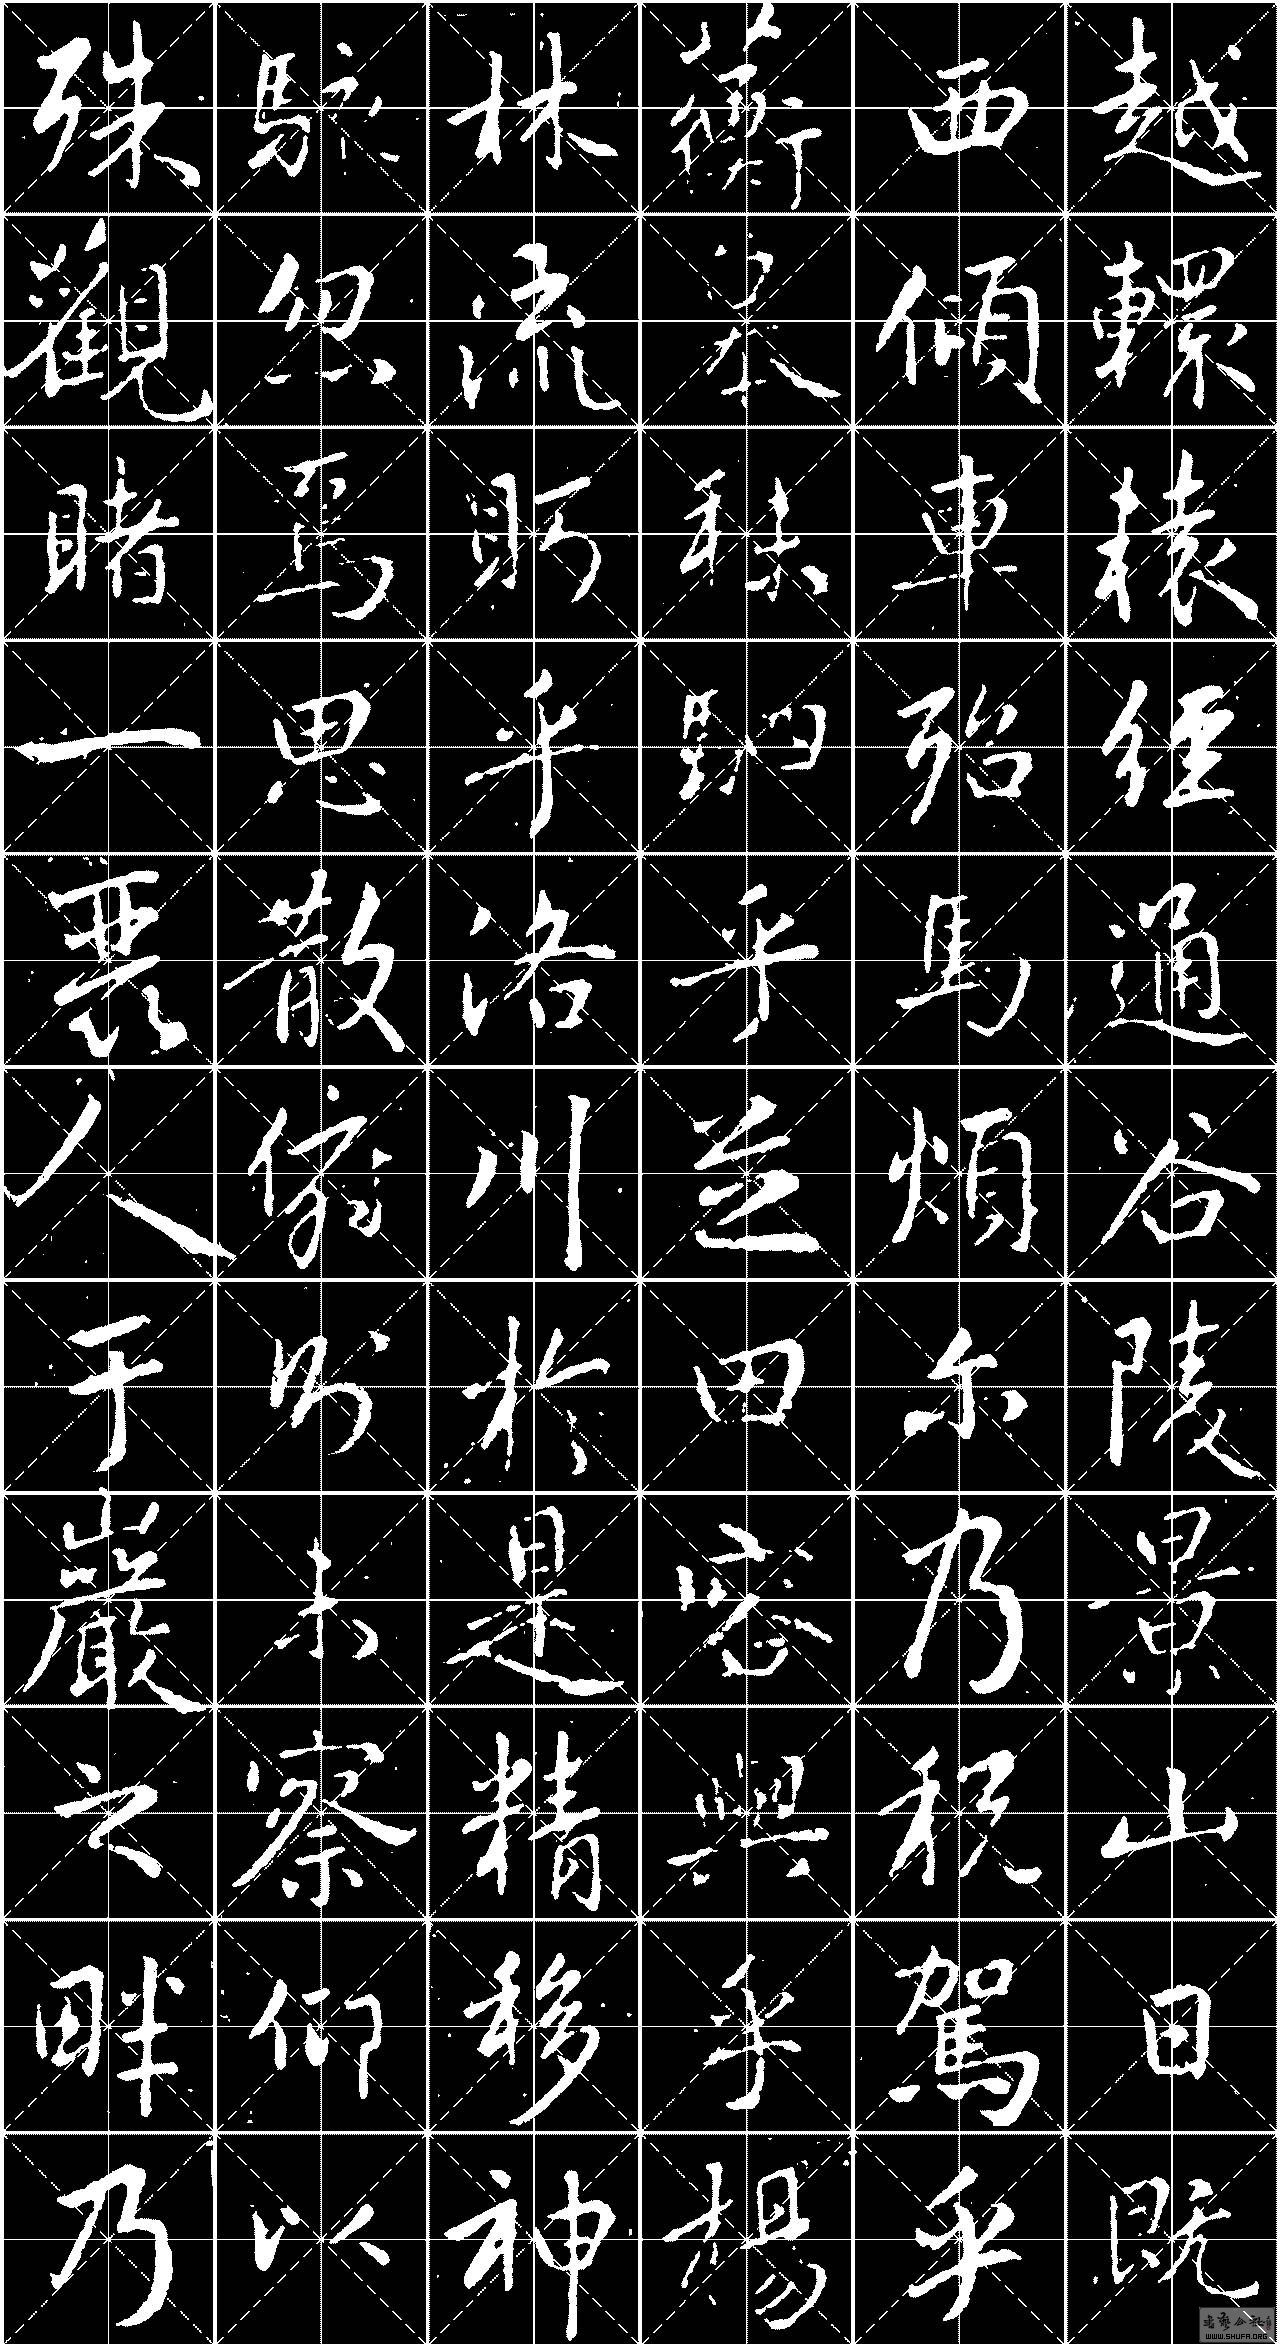 越轘轅經通谷陵景山日既
西傾車殆馬煩尔乃税駕乎
蘅皋秣駟乎芝田容與乎楊
林流眄乎洛川於是精移神
駭忽焉思散俯則未察仰以
殊觀睹一麗人于巖之畔乃
WWW.SHUFA.ORG